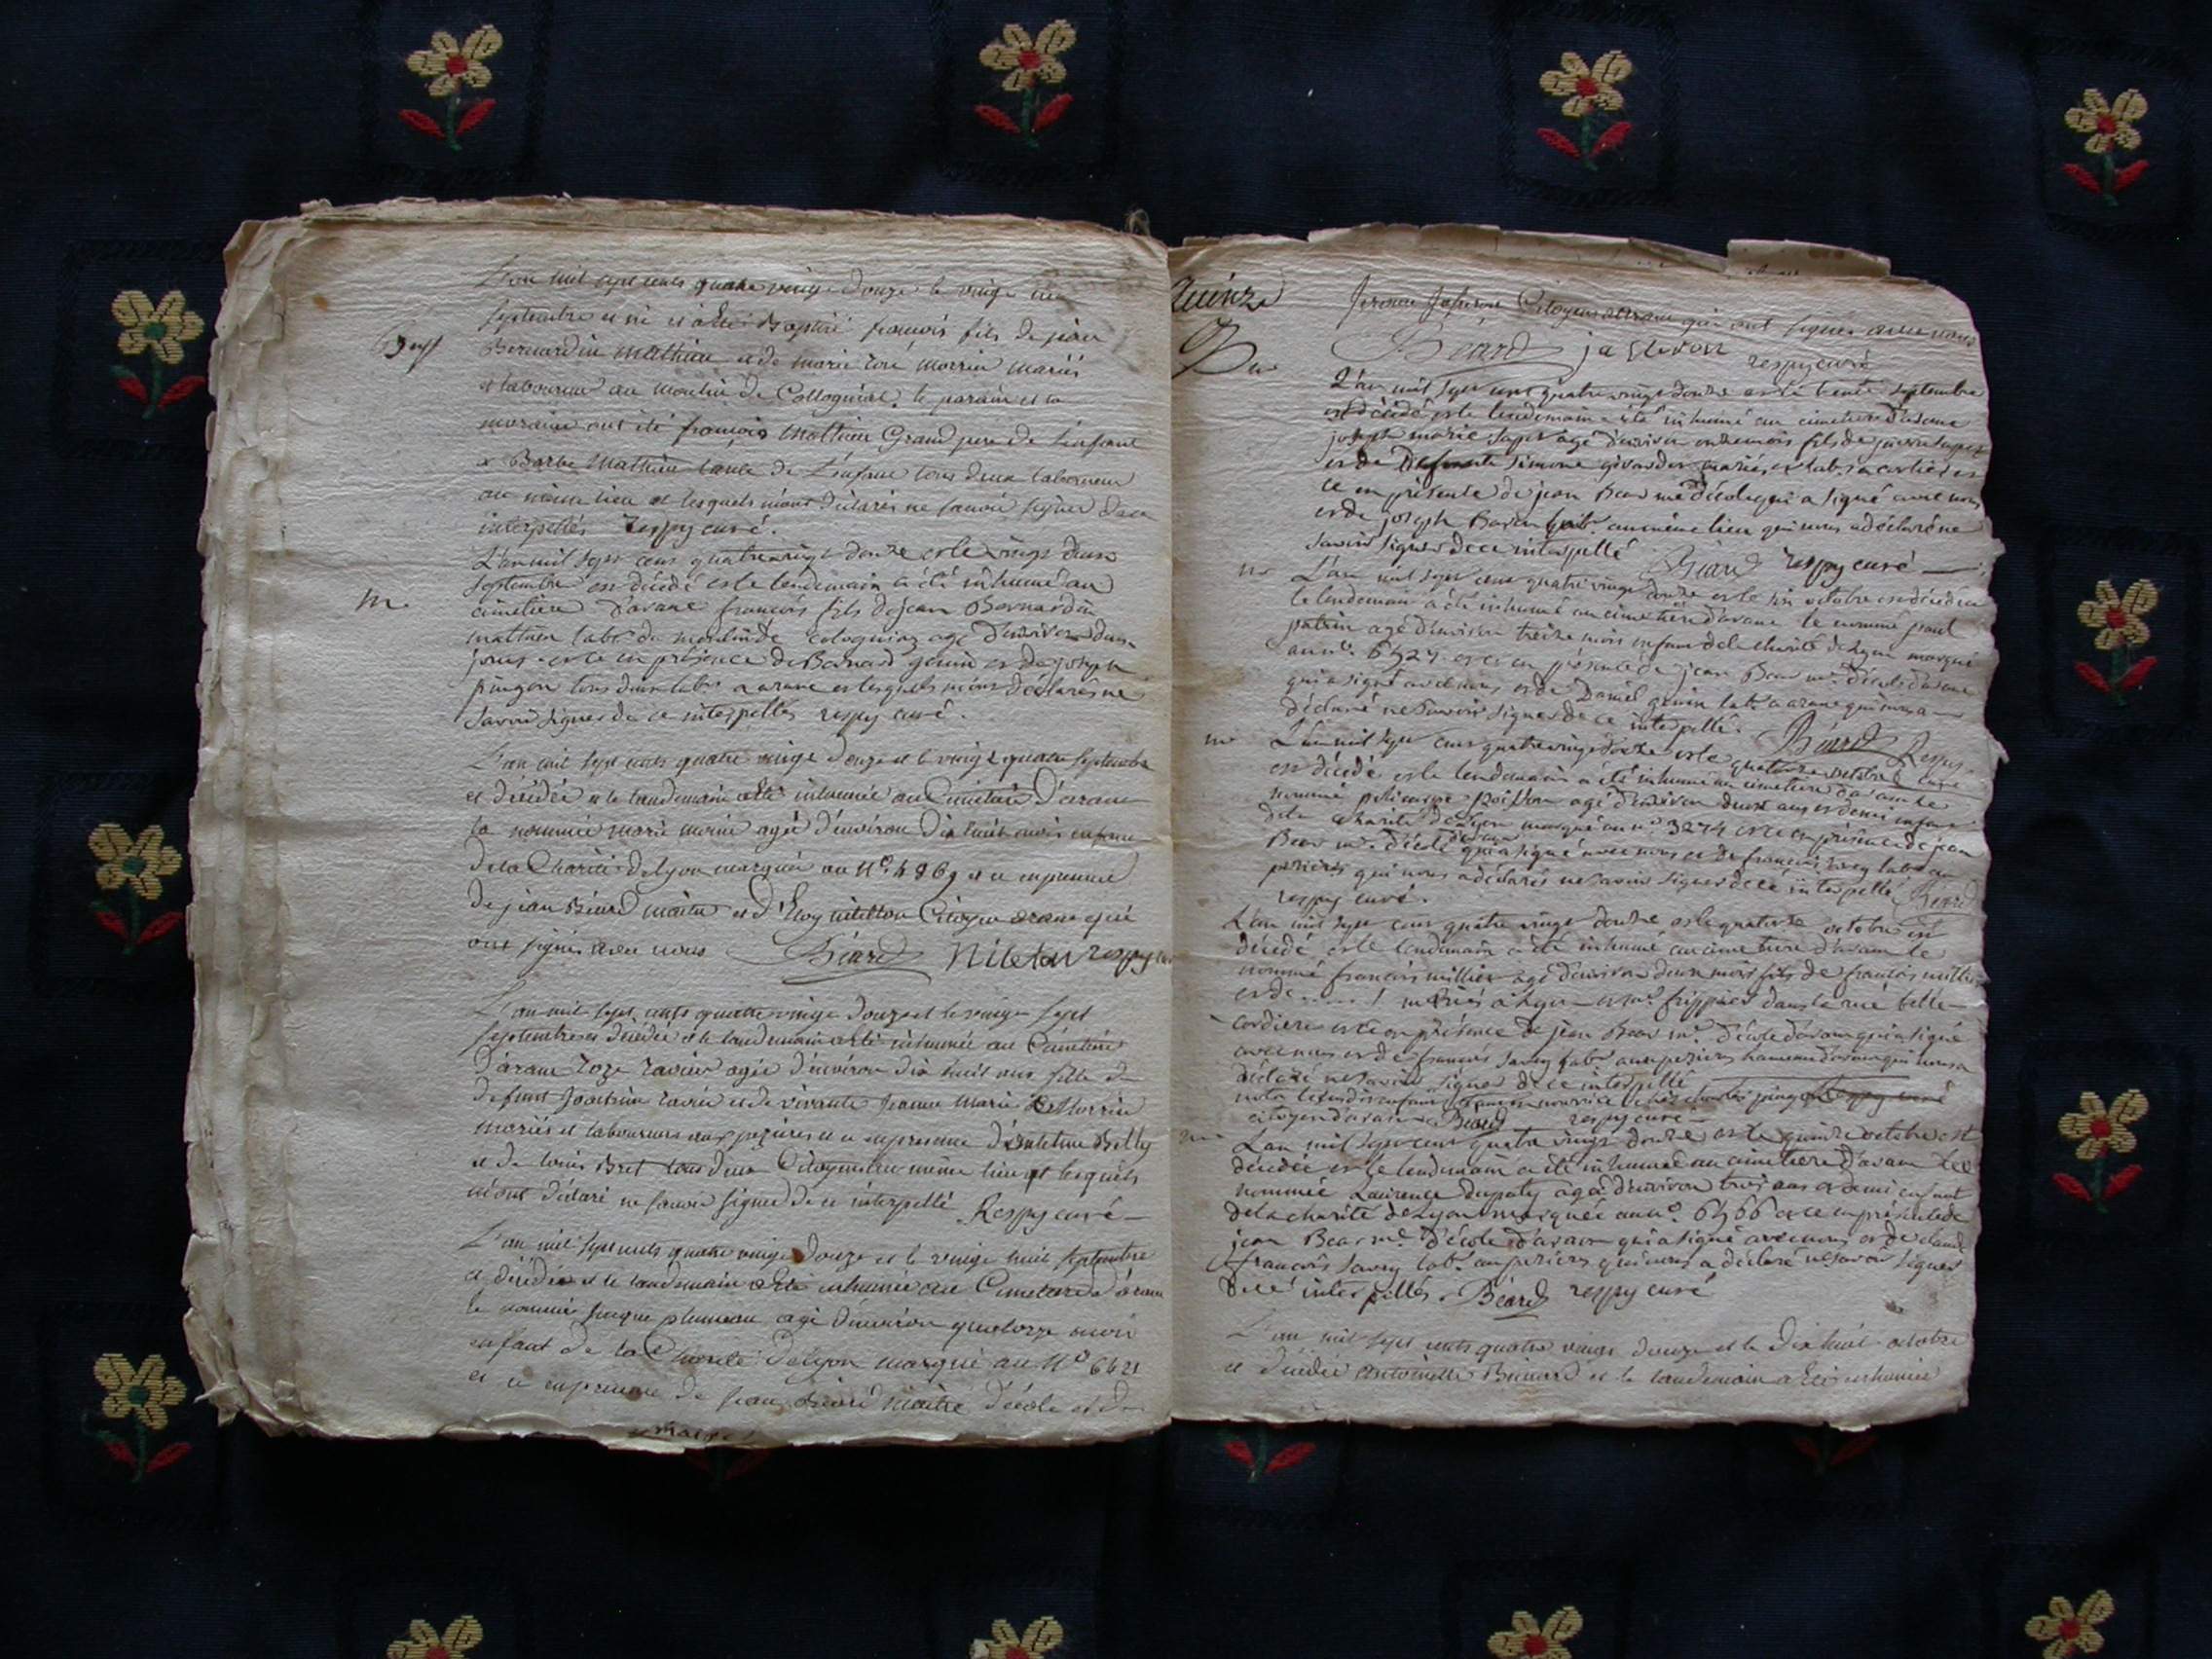 L'an mil sept cents quatre vingt douze le vingt un
septembre est né et a été Baptisé françois fils de jean
Bernardin Mathieu et de marie morrin mariés
et laboureur au moulin de Colognial, le parain et la
maraine ont été françois Mathieu Grand pere de l'enfant
et Barbe Mathieu tante de l'enfant tous deux laboureur
au même lieu et lesquels m'ont déclarés ne savoir signer de ce
interpellés Reppy curé.
m.
L'an mil sept cens quatre vingt douze et le vingt deux
septembre est décédé et le lendemain a été inhumé au
cimetiere d'arane françois fils de jean Bernardin
mathieu labr du moulin de agé d'environ deux
jours et ce en présence de Bernard genin et de joseph
pingon tous deux labrs a arane et lesquels m'ont déclarés ne
savoir signer de ce interpellés reppy curé.
L'an mil sept cents quatre vingt douze et le vingt quatre septembre
et décédée et le landemain a été inhumée au Cimetière d'arane
la nommée marie morin agée d'environ dix huit mois enfant
de la Charité de lyon marquée au N° 4869 et ce en presence
de jean Béard maitre et d'Eloy nileton Citoyen d'arane qui
ont signés avec nous Béard Nileton reppy
L'an mil sept cents quatre vingt douze et le vingt sept
septembre est décédée et le landemain a été inhumée au Cimetière
d'arane Roze Ravier agée d'environ dix huit ans fille de
defunt Joachim ravier et de vivante jeanne Marie Morrin
mariés et laboureurs aux pezières et ce en presence d'Antelme Billy
et de Louis Bret tous deux Citoyens du même lieu et lesquels
m'ont déclaré ne savoir signer de ce interpellé Reppy curé
L'an mil sept cents quatre vingt douze et le vingt huit septembre
et décédée et le landemain a été inhumée au Cimetière d'arane
le nommé jacque plumeau agé d'environ quatorze mois
enfant de la Charité de lyon marqué au N° 6621
et ce en presence de jean Béard maitre d'école et de
Quinze
jerome Citoyens d'arane qui ont signés avec nous
Béard reppy curé
L'an mil sept cent quatre vingt douze et le trente septembre
est décédé et le lendemain a été inhumé au cimetiere d'arane
joseph marie agé d'environ onze mois fils de
et de Defunte simone mariés et labrs a et
ce en présence de jean Bear me d'école qui a signé avec nous
et de joseph labr au même lieu qui nous a déclaré ne
savoir signer de ce interpellé Béard reppy curé
L'an mil sept cens quatre vingt douze et le six octobre est décédé et
le lendemain a été inhumé au cimetiere d'arane le nommé paul
patrin agé d'environ treize mois enfant de la charité de Lyon marqué
au n°. et ce en présence de jean Bear me d'école d'arane
qui a signé avec nous et de Daniel genin labr a arane qui nous a
déclaré ne savoir signer de ce interpellé. Béard Reppy
curé
L'an mil sept cens quatre vingt douze et le quatorze octobre
est décédé et le lendemain a été inhumé au cimetiere d'arane le
nommé policarpe poisson agé d'environ deux ans et demi enfant
de la charité de Lyon marqué au n°. 3274 et ce en présence de jean
Bear me d'école d'arane qui a signé avec nous et de françois savey labr au
perieres qui nous a déclarés ne savoir signer de ce interpellé Béard
reppy curé.
L'an mil sept cens quatre vingt douze et le quatorze octobre est
décédé et le lendemain a été inhumé au cimetiere d'arane le
nommé françois millier agé d'environ deux mois fils de françois millier
et de ...... mariés a Lyon et frippier dans la rue belle
cordiere et ce en présence de jean Bear me d'école d'arane qui a signé
avec nous et de françois savey labr aux periers hameau d'arane qui nous a
déclaré ne savoir signer de ce interpellé
citoyen d'arane Béard reppy curé
L'an mil sept cens quatre vingt douze et le quinze octobre est
décédée et le lendemain a été inhumée au cimetiere d'arane la
nommée Laurence dupaty agée d'environ trois ans et demi enfant
de la charité de Lyon marquée au n°. 6566 et ce en présence de
jean Bear me d'école d'arane qui a signé avec nous et de claude
françois savey labr au periers qui nous a déclaré ne savoir signer
de ce interpellés. Béard reppy curé
L'an mil sept cents quatre vingt douze et le dix huit octobre
et décédée antoinette Binard et le landemain a été inhumée